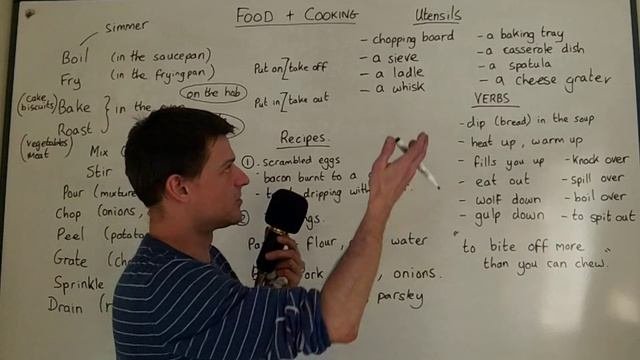 FOOD + COOKING
simmer
Boil (in the saucepan)
Fry (in the frying pan)
on the hob
(cake biscuits) Bake } in the
Roast
(vegetables meat)
Mix
Stir
Pour (mixture
Chop (onions,
Peel (potato
Grate (ch
Sprinkle
Drain (r
Put on / take off
Put in / take out
Recipes.
① - scrambled eggs
bacon burnt to a
dripping with
②
flour, water
onions.
parsley
Utensils
- chopping board
- a sieve
- a ladle
- a whisk
- a baking tray
- a casserole dish
- a spatula
- a cheese grater
VERBS
- dip (bread) in the soup
- heat up, warm up
- fills you up - knock over
- eat out - spill over
- wolf down - boil over
- gulp down - to spit out
"to bite off more
than you can chew."